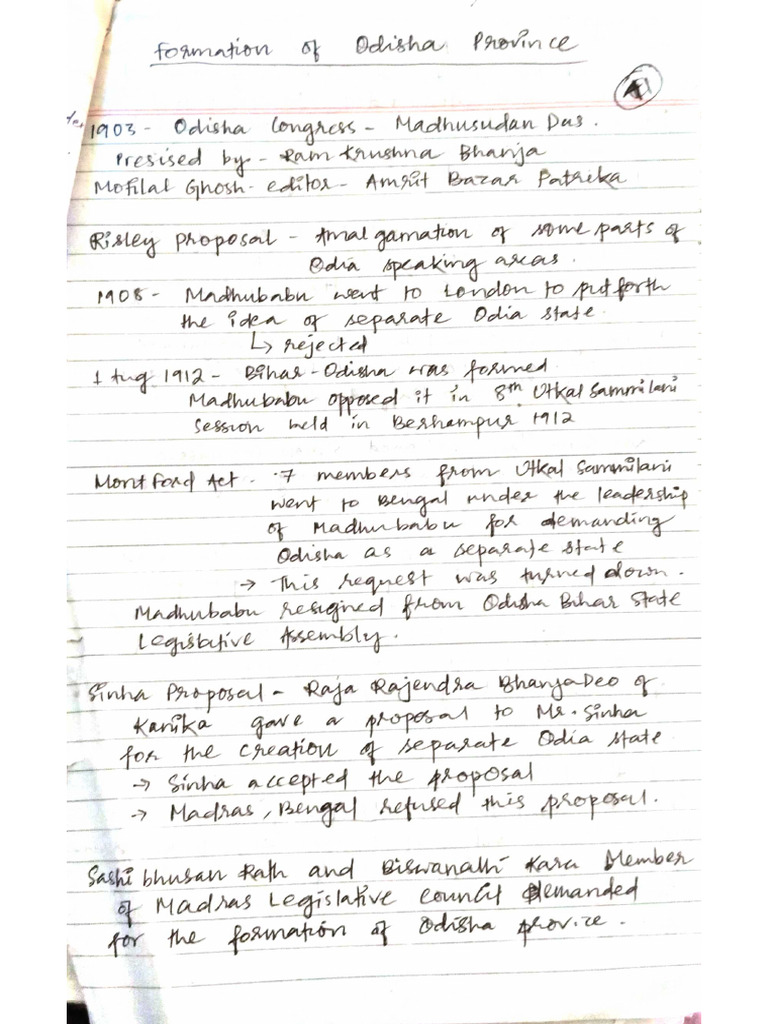 Formation of Odisha Province
1903 - Odisha Congress - Madhusudan Das.
Presised by - Ram Krushna Bhanja
Motilal Ghosh - editor - Amrit Bazar Patrika
Risley Proposal - Amalgamation of some parts of
Odia speaking areas.
1908 - Madhubabu went to London to put forth
the idea of separate Odia state.
↳ rejected
1 Aug 1912 - Bihar-Odisha was formed
Madhubabu opposed it in 8th Utkal Sammilani
session held in Berhampur 1912
Mont Ford Act. 7 members from Utkal Sammilani
went to Bengal under the leadership
of Madhubabu for demanding
Odisha as a separate state
→ This request was turned down.
Madhubabu resigned from Odisha Bihar State
Legislative Assembly.
Sinha Proposal - Raja Rajendra BhanjaDeo of
Kanika gave a proposal to Mr. Sinha
for the creation of separate Odia state
→ Sinha accepted the proposal
→ Madras, Bengal refused this proposal.
Sashi bhusan Rath and Biswanath Kara Member
of Madras Legislative council demanded
for the formation of Odisha provice.